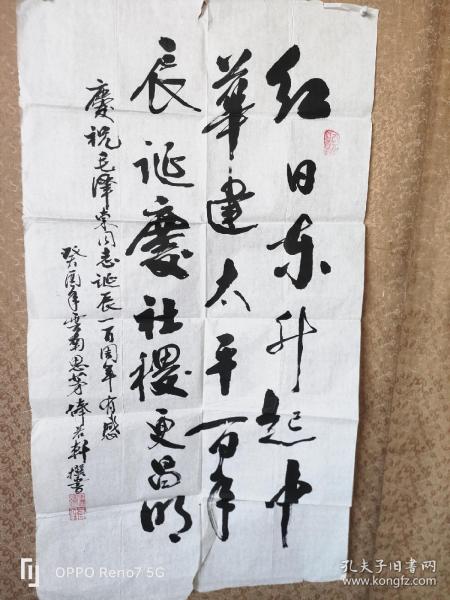 红日东升起中
華建太平百年
辰诞慶社稷更昌明
慶祝毛泽东同志诞辰一百周年有感
癸酉年雲南思芽 撰書
OPPO Reno7 5G
孔夫子旧书网
www.kongfz.com